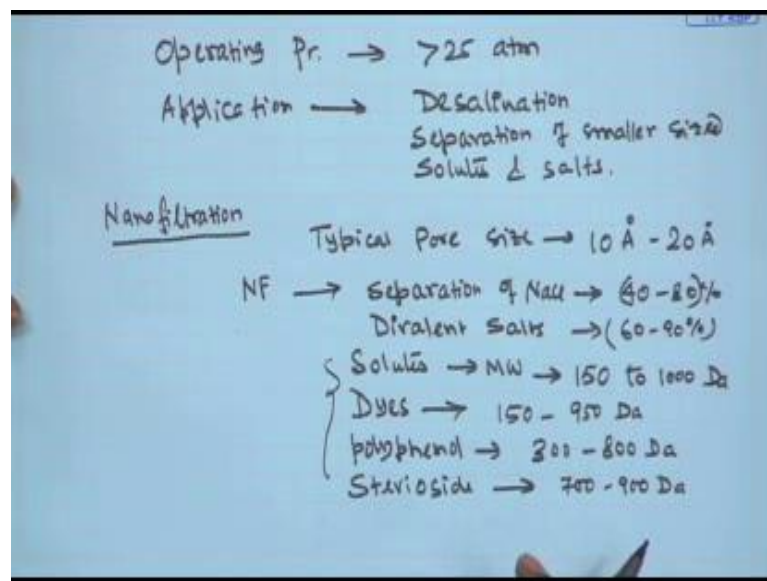 Operating Pr. → >25 atm
Application → Desalination
Separation of smaller sized
Solutes & salts.
Nanofiltration
Typical Pore size → 10 Å - 20 Å
NF → Separation of NaCl → (40-80)%
Divalent Salts → (60-90%)
Solutes → MW → 150 to 1000 Da
Dyes → 150 - 950 Da
polyphenol → 300 - 800 Da
Stevioside → 700 - 900 Da